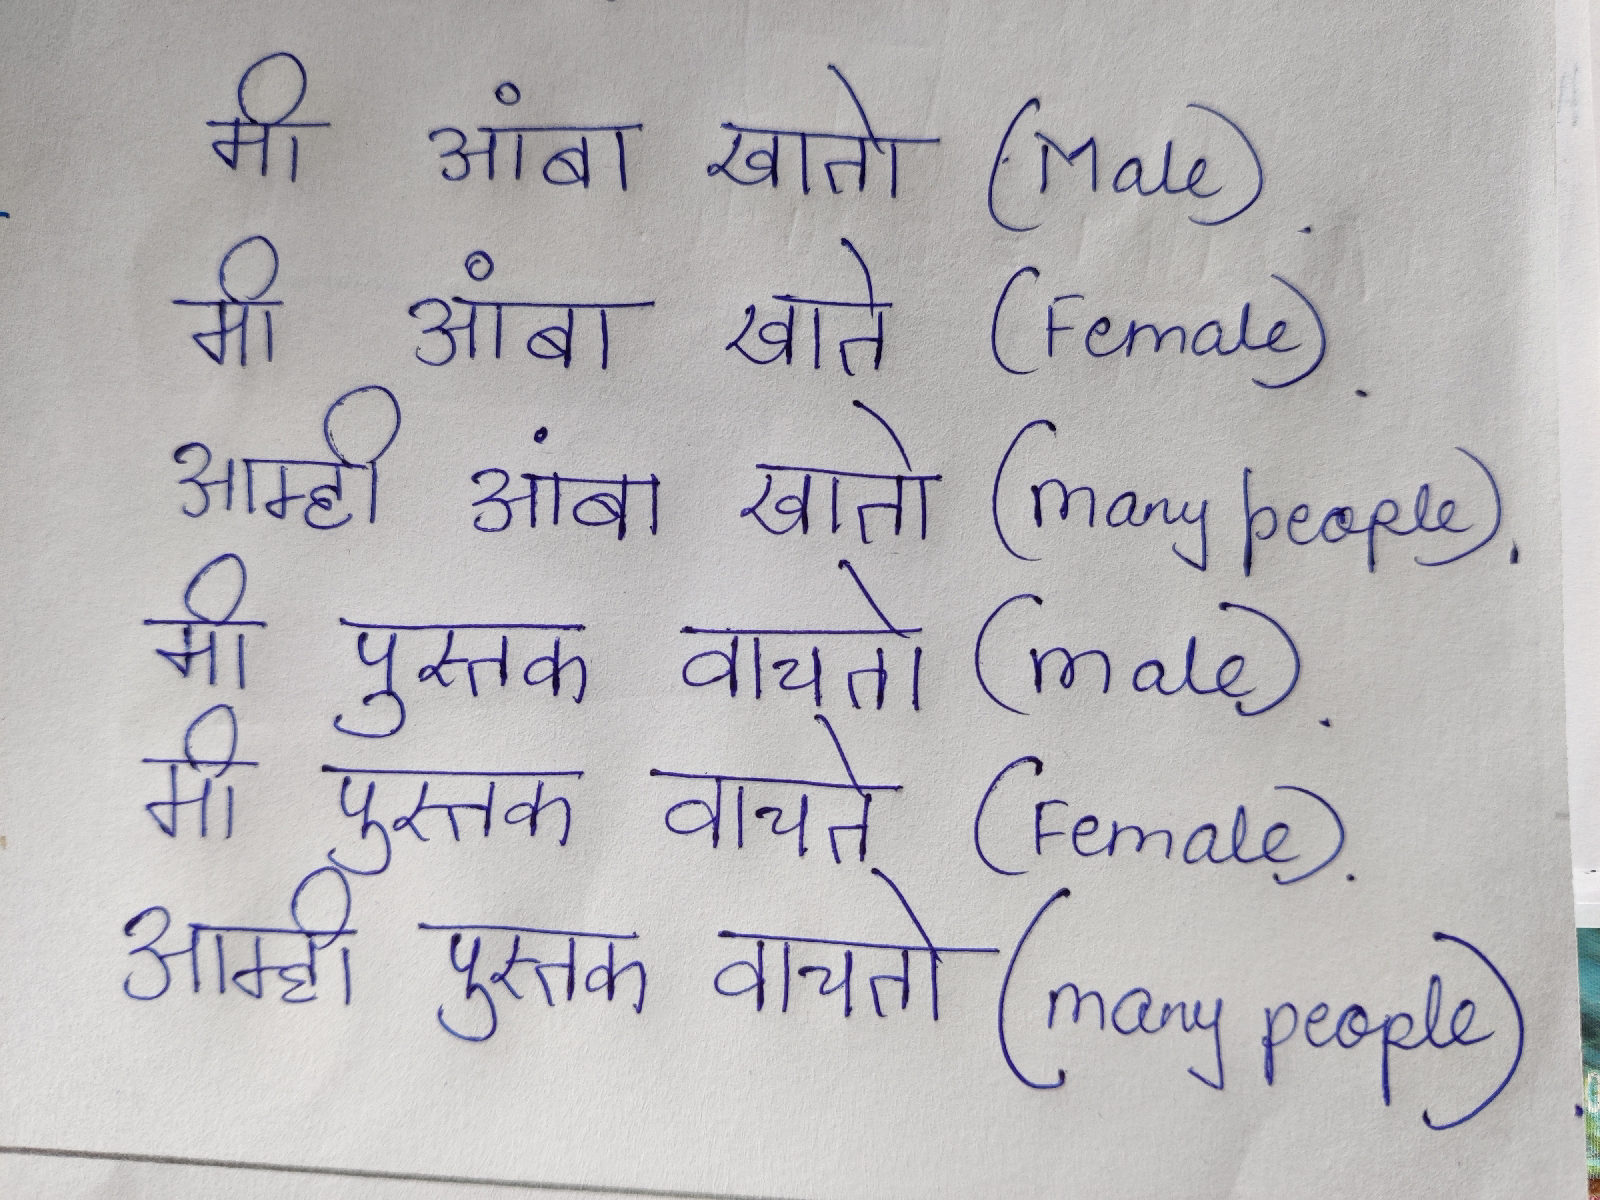 मी आंबा खातो (Male).
मी आंबा खाते (Female).
आम्ही आंबा खातो (many people).
मी पुस्तक वाचतो (male).
मी पुस्तक वाचते (Female).
आम्ही पुस्तक वाचतो (many people).